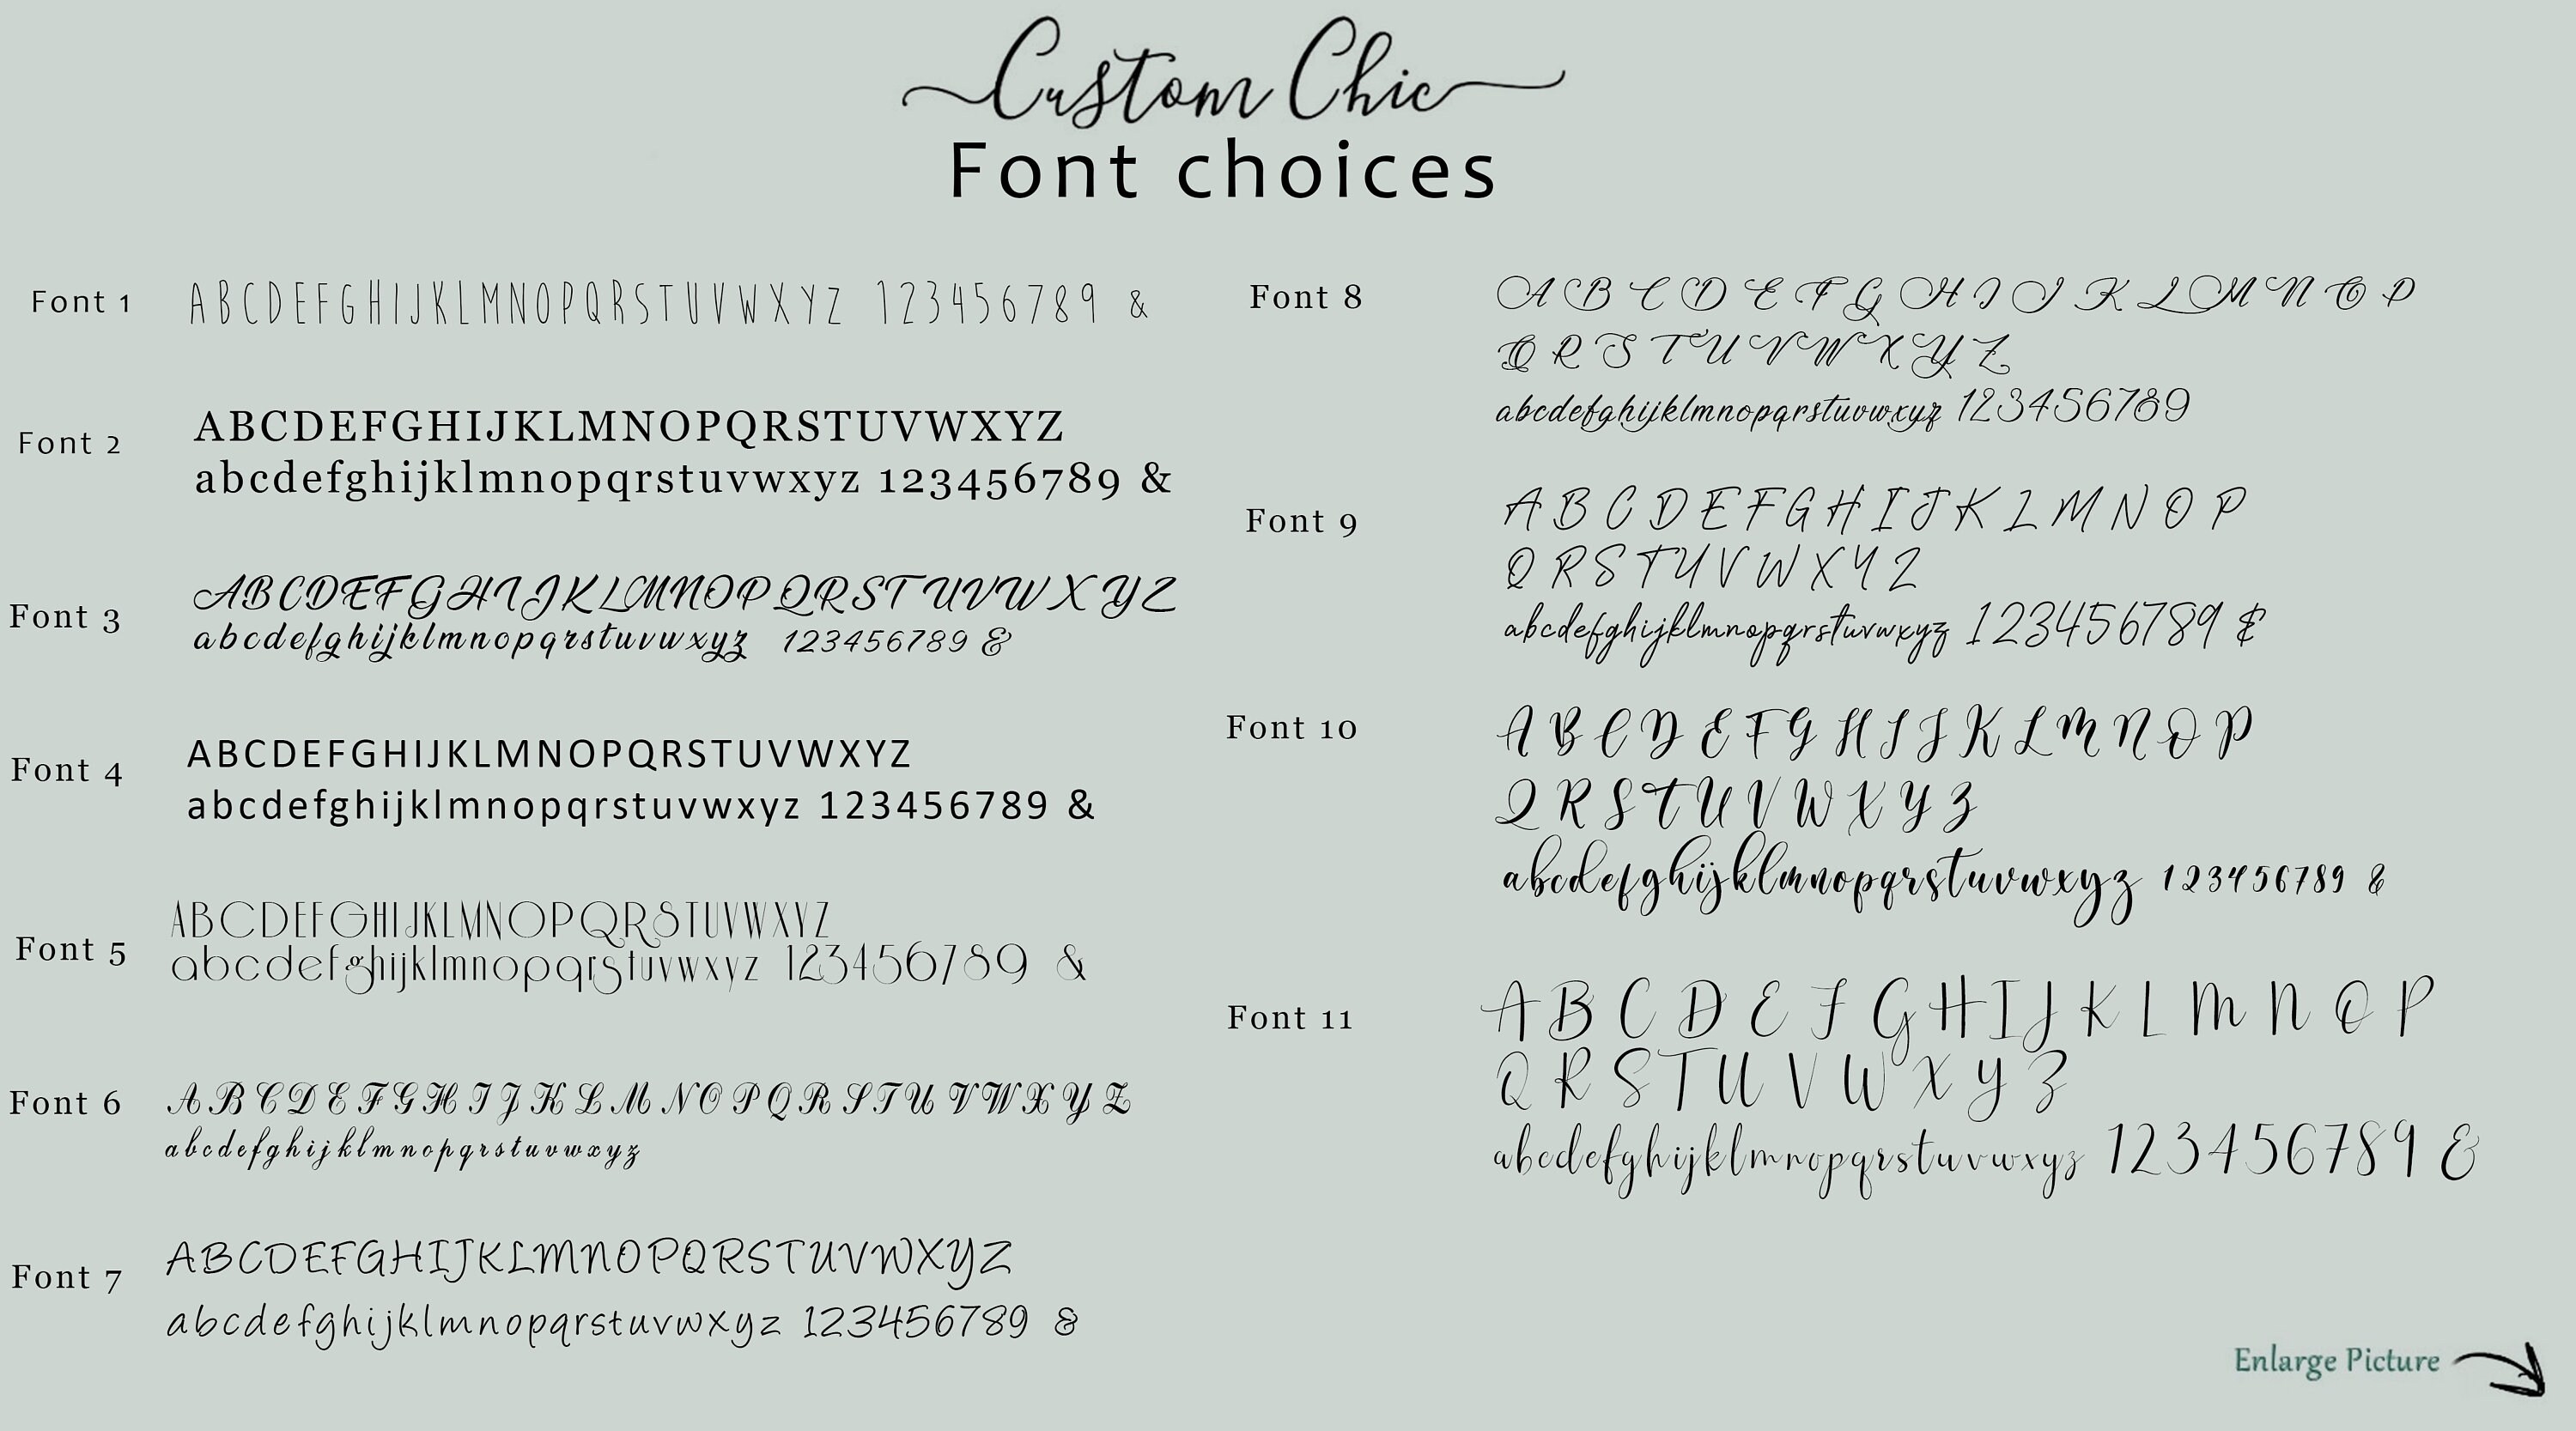 Custom Chic
Font choices
Font 1
ABCDEFGHIJKLMNOPQRSTUVWXYZ 123456789 &
Font 2
ABCDEFGHIJKLMNOPQRSTUVWXYZ
abcdefghijklmnopqrstuvwxyz 123456789 &
Font 3
ABCDEFGHIJKLMNOPQRSTUVWXYZ
abcdefghijklmnopqrstuvwxyz 123456789 &
Font 4
ABCDEFGHIJKLMNOPQRSTUVWXYZ
abcdefghijklmnopqrstuvwxyz 123456789 &
Font 5
ABCDEFGHIJKLMNOPQRSTUVWXYZ
abcdefghijklmnopqrstuvwxyz 123456789 &
Font 6
A B C D E F G H I J K L M N O P Q R S T U V W X Y Z
abcdefghijklmnopqrstuvwxyz
Font 7
ABCDEFGHIJKLMNOPQRSTUVWXYZ
abcdefghijklmnopqrstuvwxyz 123456789 &
Font 8
A B C D E F G H I J K L M N O P
Q R S T U V W X Y Z
abcdefghijklmnopqrstuvwxyz 123456789
Font 9
A B C D E F G H I J K L M N O P
Q R S T U V W X Y Z
abcdefghijklmnopqrstuvwxyz 123456789 &
Font 10
A B C D E F G H I J K L M N O P
Q R S T U V W X Y Z
abcdefghijklmnopqrstuvwxyz 123456789 &
Font 11
A B C D E F G H I J K L M N O P
Q R S T U V W X Y Z
abcdefghijklmnopqrstuvwxyz 123456789 &
Enlarge Picture